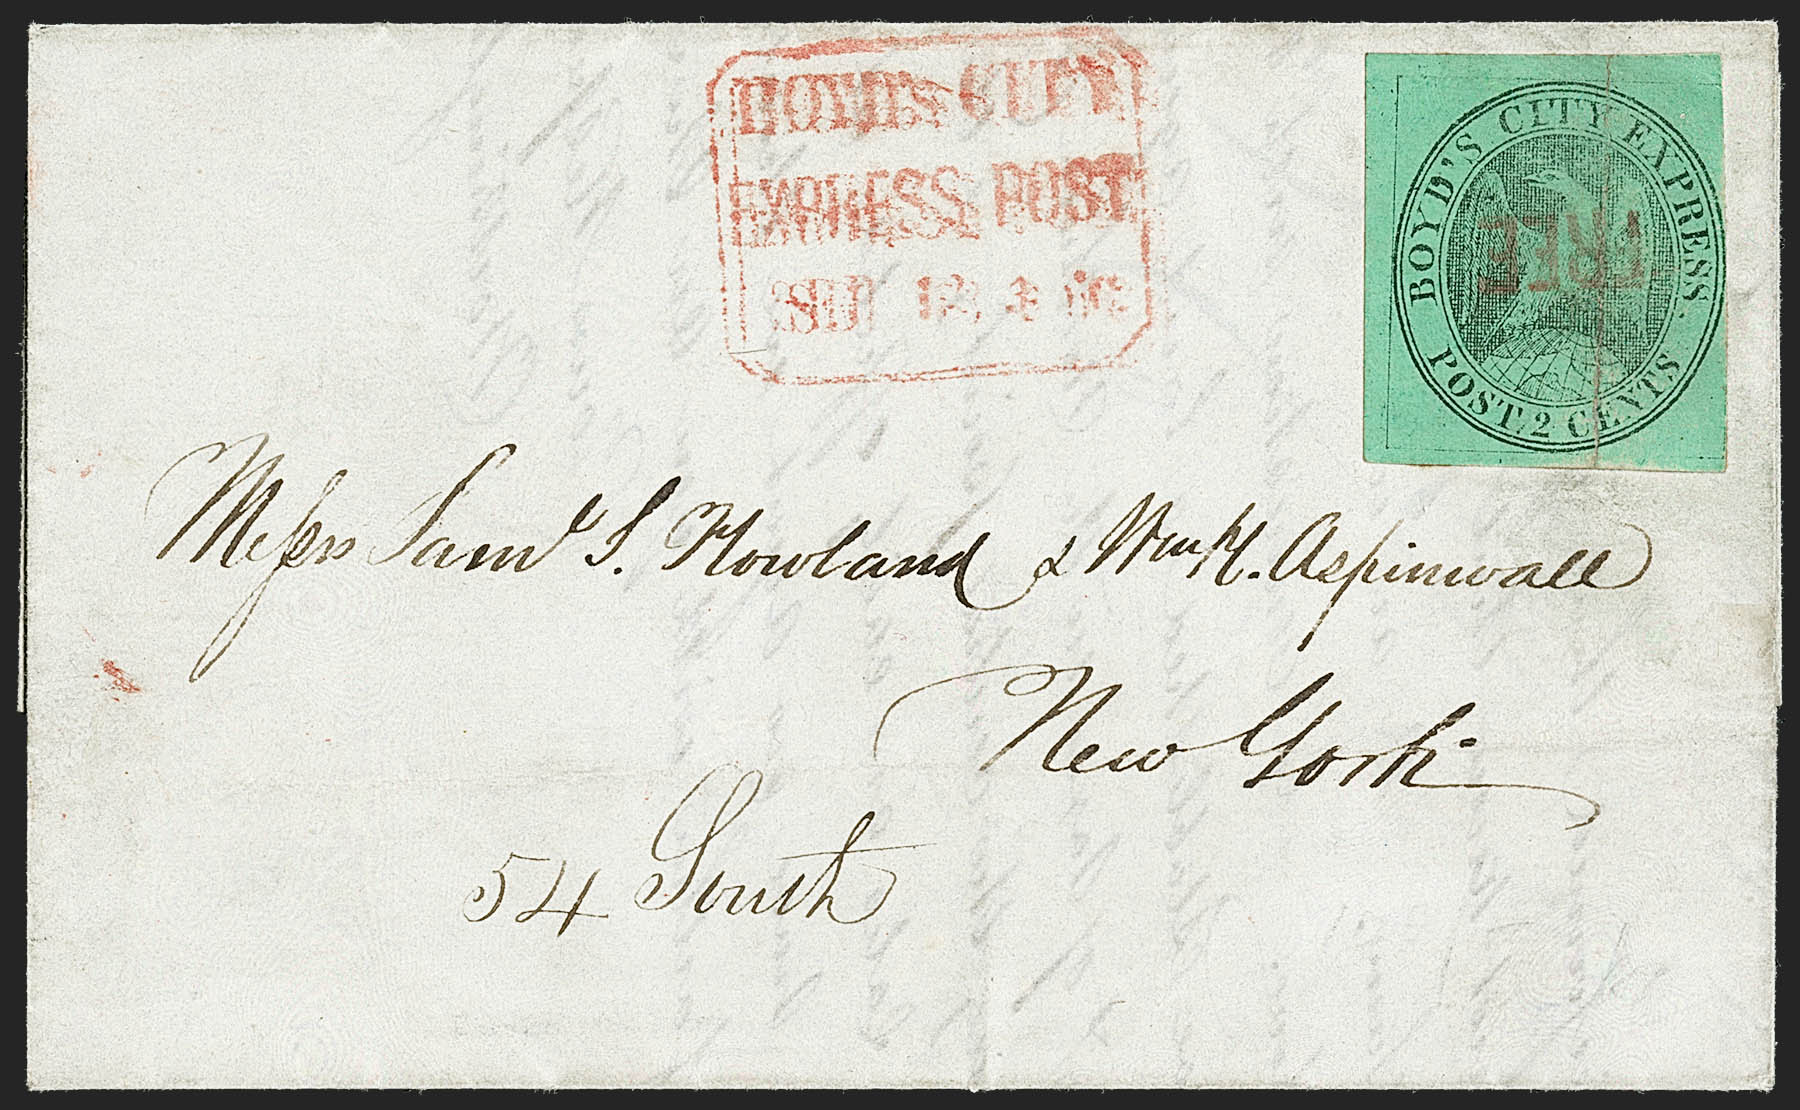 BOYD'S CITY
EXPRESS POST
BOYD'S CITY EXPRESS
POST. 2 CENTS.
FREE
Messrs Saml S. Howland & Wm H. Aspinwall
New York
54 South